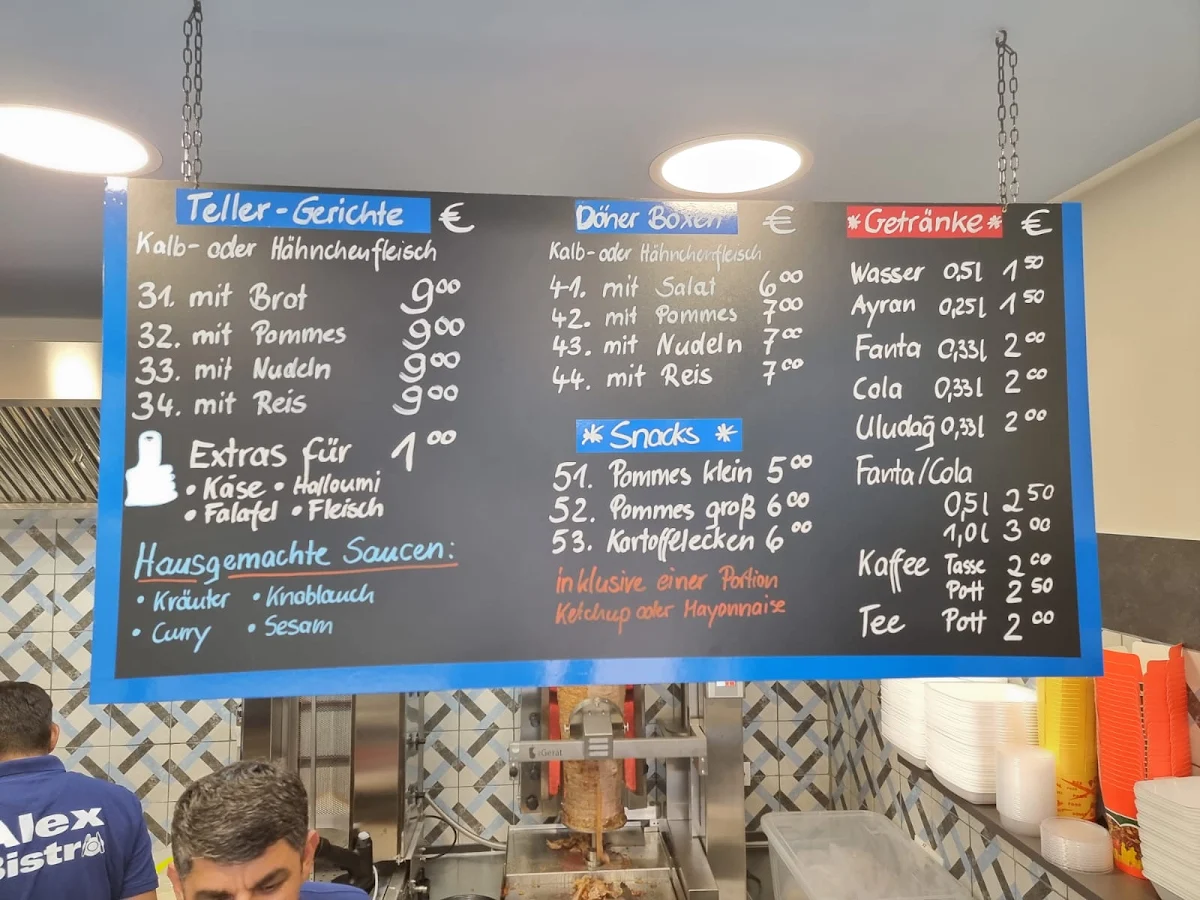 Teller-Gerichte €
Kalb- oder Hähnchenfleisch
31. mit Brot 9 00
32. mit Pommes 9 00
33. mit Nudeln 9 00
34. mit Reis 9 00
Extras für 1 00
• Käse • Halloumi
• Falafel • Fleisch
Hausgemachte Saucen:
• Kräuter • Knoblauch
• Curry • Sesam
Döner Boxen €
Kalb- oder Hähnchenfleisch
41. mit Salat 6 00
42. mit Pommes 7 00
43. mit Nudeln 7 00
44. mit Reis 7 00
* Snacks *
51. Pommes klein 5 00
52. Pommes groß 6 00
53. Kartoffelecken 6 00
inklusive einer Portion
Ketchup oder Mayonnaise
*Getränke* €
Wasser 0,5l 1 50
Ayran 0,25l 1 50
Fanta 0,33l 2 00
Cola 0,33l 2 00
Uludağ 0,33l 2 00
Fanta/Cola
0,5l 2 50
1,0l 3 00
Kaffee Tasse 2 00
Pott 2 50
Tee Pott 2 00
iGerät
Alex
Bistro